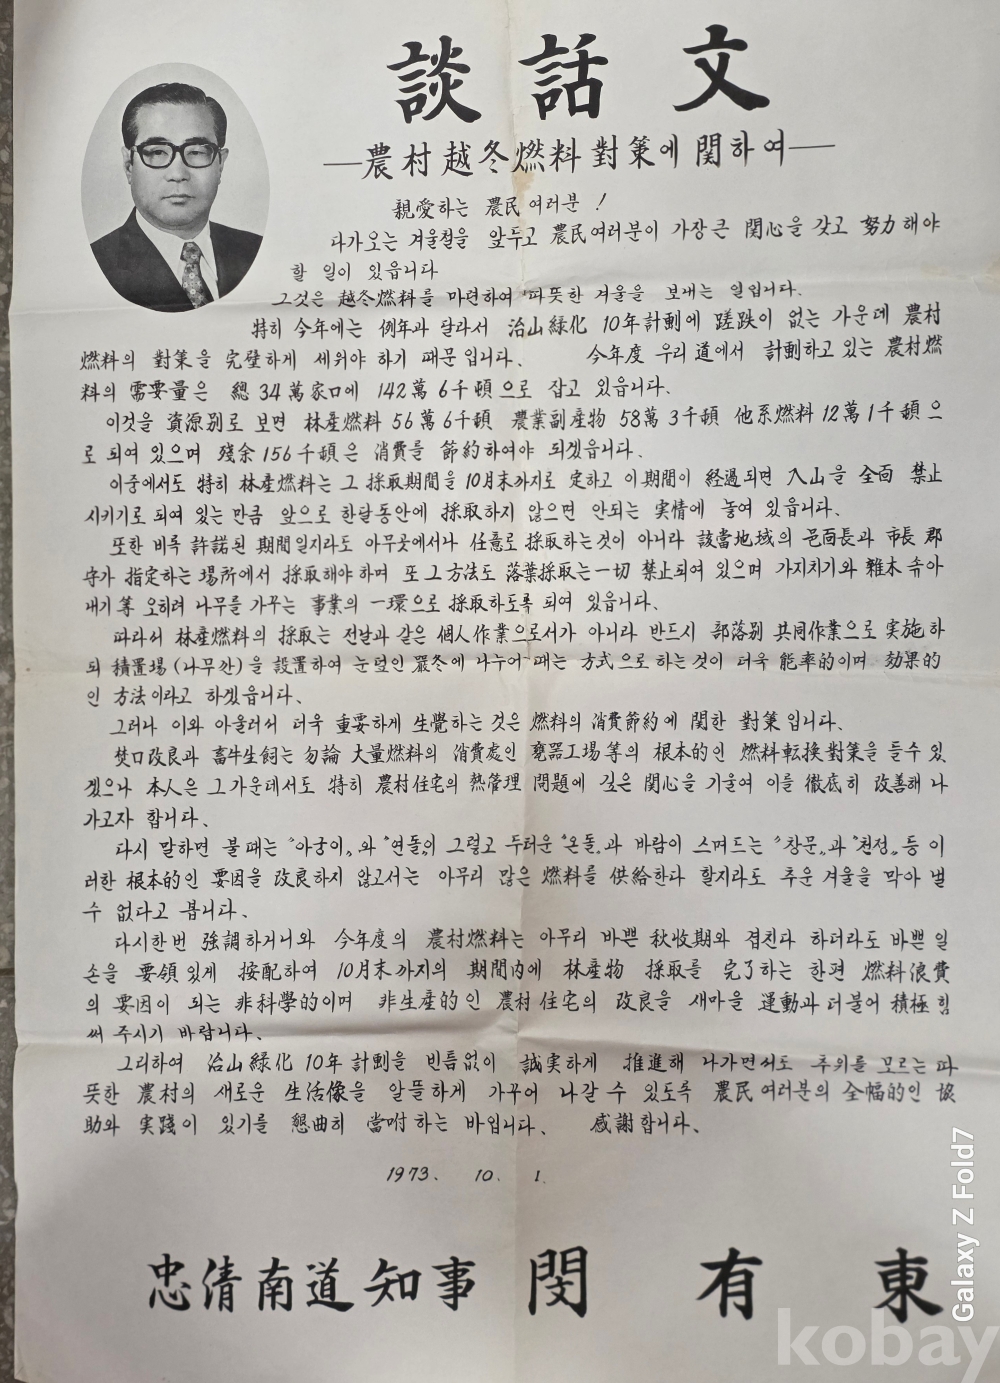 談話文
—農村越冬燃料對策에 関하여—
親愛하는 農民 여러분 !
다가오는 겨울철을 앞두고 農民여러분이 가장큰 関心을 갖고 努力해야
할 일이 있읍니다
그것은 越冬燃料를 마련하여 따뜻한 겨울을 보내는 일입니다.
特히 今年에는 例年과 달라서 治山緑化 10年計劃에 蹉跌이 없는 가운데 農村
燃料의 對策을 完璧하게 세워야 하기 때문입니다. 今年度 우리道에서 計劃하고 있는 農村燃
料의 需要量은 總 34萬家口에 142萬 6千頓으로 잡고 있읍니다.
이것을 資源別로 보면 林産燃料 56萬 6千頓 農業副産物 58萬 3千頓 他系燃料 12萬 1千頓으
로 되여 있으며 殘余 156千頓은 消費를 節約하여야 되겠읍니다.
이중에서도 特히 林産燃料는 그 採取期間을 10月末까지로 定하고 이期間이 経過되면 入山을 全面 禁止
시키기로 되여 있는 만큼 앞으로 한달동안에 採取하지 않으면 안되는 実情에 놓여 있읍니다.
또한 비록 許諾된 期間일지라도 아무곳에서나 任意로 採取하는것이 아니라 該當地域의 邑面長과 市長 郡
守가 指定하는 場所에서 採取해야하며 또그方法도 落葉採取는一切 禁止되여 있으며 가지치기와 雜木솎아
내기等 오히려 나무를 가꾸는 事業의 一環으로 採取하도록 되여 있읍니다.
따라서 林産燃料의 採取는 전날과 같은 個人作業으로서가 아니라 반드시 部落별 共同作業으로 実施하
되 積置場(나무깐)을 設置하여 눈덮인 嚴冬에 나누어 때는 方式으로 하는것이 더욱 能率的이며 効果的
인 方法이라고 하겠읍니다.
그러나 이와 아울러서 더욱 重要하게 生覺하는 것은 燃料의 消費節約에 関한 對策입니다.
焚口改良과 畜牛生飼는 勿論 大量燃料의 消費處인 甕器工場等의 根本的인 燃料転換對策을 들수있
겠으나 本人은 그가운데서도 特히 農村住宅의 熱管理 問題에 깊은 関心을 기울여 이를 徹底히 改善해 나
가고자 합니다.
다시 말하면 불때는 "아궁이„와 "연돌„이 그렇고 두터운 "온돌„과 바람이 스며드는 "창문„과 "천정„등 이
러한 根本的인 要因을 改良하지 않고서는 아무리 많은 燃料를 供給한다 할지라도 추운 겨울을 막아 낼
수 없다고 봅니다.
다시한번 強調하거니와 今年度의 農村燃料는 아무리 바쁜 秋收期와 겹친다 하더라도 바쁜 일
손을 要領있게 按配하여 10月末까지의 期間内에 林産物 採取를 完了하는 한편 燃料浪費
의 要因이 되는 非科學的이며 非生産的인 農村住宅의 改良을 새마을 運動과 더불어 積極 힘
써 주시기 바랍니다.
그리하여 治山緑化 10年 計劃을 빈틈없이 誠実하게 推進해 나가면서도 추위를 모르는 따
뜻한 農村의 새로운 生活像을 알뜰하게 가꾸어 나갈 수 있도록 農民여러분의 全幅的인 協
助와 実践이 있기를 懇曲히 當咐하는 바입니다. 感謝합니다.
1973. 10. 1.
忠淸南道知事 閔有東
Galaxy Z Fold7
kobay